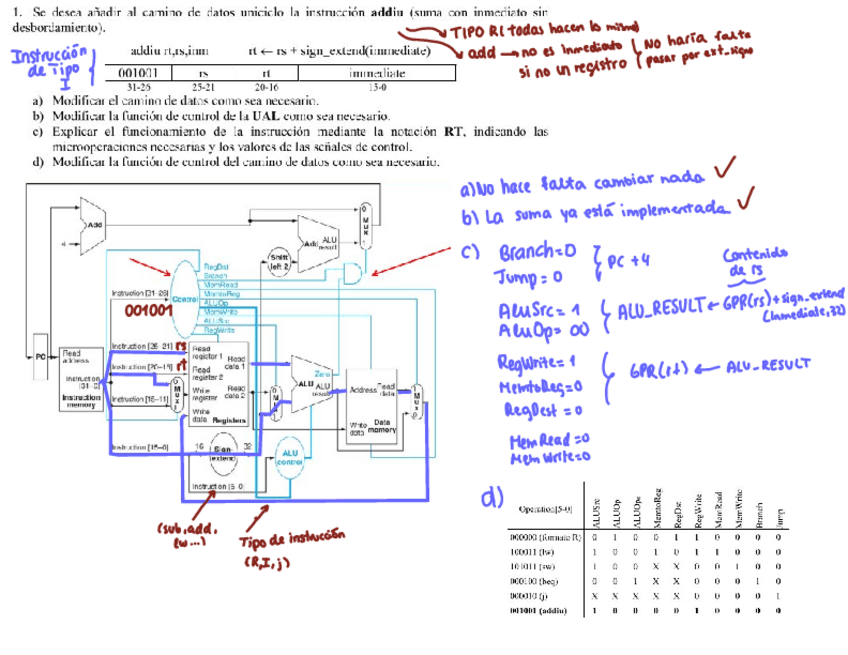 1. Se desea añadir al camino de datos uniciclo la instrucción addiu (suma con inmediato sin
desbordamiento).
TIPO RI todas hacen lo mismo
add → no es inmediato
si no un registro
No haría falta
pasar por ext_signo
Instrucción
de Tipo
I
addiu rt,rs,inm rt ← rs + sign_extend(immediate)
001001 rs rt immediate
31-26 25-21 20-16 15-0
a) Modificar el camino de datos como sea necesario.
b) Modificar la función de control de la UAL como sea necesario.
c) Explicar el funcionamiento de la instrucción mediante la notación RT, indicando las
microoperaciones necesarias y los valores de las señales de control.
d) Modificar la función de control del camino de datos como sea necesario.
a) No hace falta cambiar nada ✓
b) La suma ya está implementada ✓
c) Branch=0
Jump=0
PC+4
Contenido
de rs
AluSrc=1
AluOp=00
ALU_RESULT ← GPR(rs)+sign_extend
(Inmediate,32)
RegWrite=1
MemtoReg=0
RegDest=0
GPR(rt) ← ALU_RESULT
MemRead=0
MemWrite=0
Add
4
Add ALU
result
0
M
u
x
1
Shift
left 2
RegDst
Branch
MemRead
MemtoReg
ALUOp
MemWrite
ALUSrc
RegWrite
Instruction [31–26]
Control
001001
PC
Read
address
Instruction
[31–0]
Instruction
memory
Instruction [25–21] rs
Instruction [20–16] rt
Instruction [15–11]
Instruction [15–0]
Read
register 1
Read
register 2
Write
register
Write
data
Read
data 1
Read
data 2
Registers
Zero
ALU ALU
result
Address
Read
data
Write
data
Data
memory
16
Sign
extend
32
ALU
control
Instruction [5–0]
(sub,add,
lw...)
Tipo de instrucción
(R,I,j)
d)
Operation[5-0] ALUSrc ALUOp ALUOp MemtoReg RegDst RegWrite MemRead MemWrite Branch Jump
000000 (formato R) 0 1 0 0 1 1 0 0 0 0
100011 (lw) 1 0 0 1 0 1 1 0 0 0
101011 (sw) 1 0 0 X X 0 0 1 0 0
000100 (beq) 0 0 1 X X 0 0 0 1 0
000010 (j) X X X X X 0 0 0 0 1
001001 (addiu) 1 0 0 0 0 1 0 0 0 0